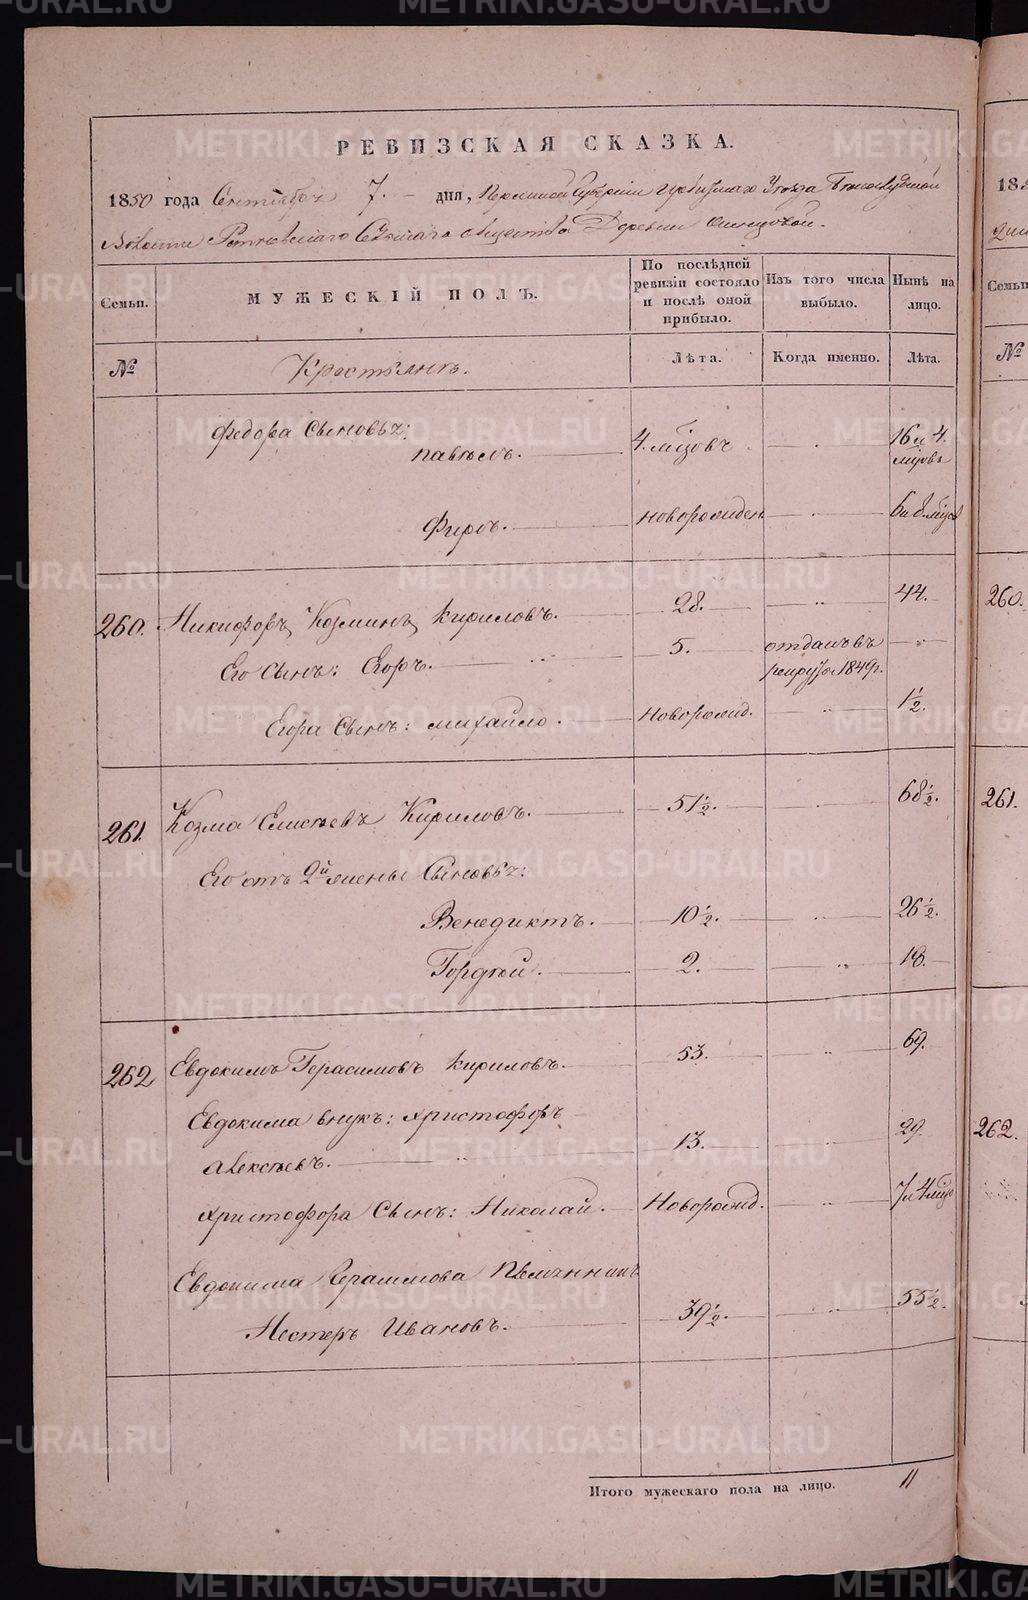 РЕВИЗСКАЯ СКАЗКА.
1850 года Сентября 7. дня, Пермской Губернии Ирбитскаго Уезда Белослудской
Волости Ретневскаго Сельскаго общества Деревни
Семьи. МУЖЕСКІЙ ПОЛЪ. По послѣдней ревизіи состояло и послѣ оной прибыло. Изъ того числа выбыло. Нынѣ на лицо.
№ Крестьянъ. Лѣта. Когда именно. Лѣта.
Федора Сыновья:
Павелъ. 4. мѣсцовъ 16 и 4. мѣсцовъ
Фирсъ. новорожден. 6 и 8 мѣсцов
260. Никифоръ Козминъ Кириловъ. 28. 44.
Его Сынъ: Егоръ. 5. отданъ въ рекруты 1849 г.
Егора Сынъ: Михайло. Новорожд. 1½.
261. Козма Елисѣевъ Кириловъ. 51½. 68½.
Его отъ 2й жены Сыновья:
Венедиктъ. 10½. 26½.
Гордѣй. 2. 18.
262. Евдокимъ Герасимовъ Кириловъ. 53. 69.
Евдокима внукъ: Христофоръ
Алексѣевъ. 13. 29.
Христофора Сынъ: Николай. Новорожд. 7 и 4 мѣсцов
Евдокима Герасимова Племянникъ
Нестеръ Ивановъ. 39½. 55½.
Итого мужескаго пола на лицо. 11
185
Семьи
№
260.
261.
262.
METRIKI.GASO-URAL.RU